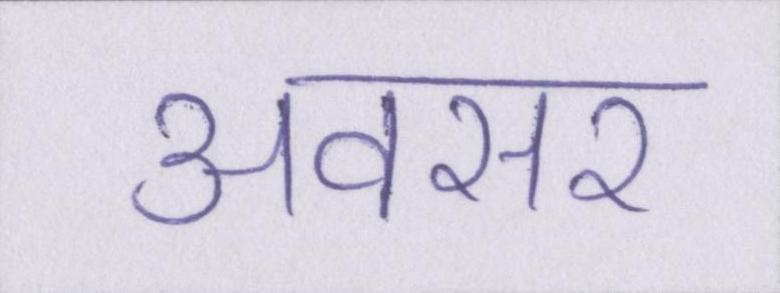 अवसर